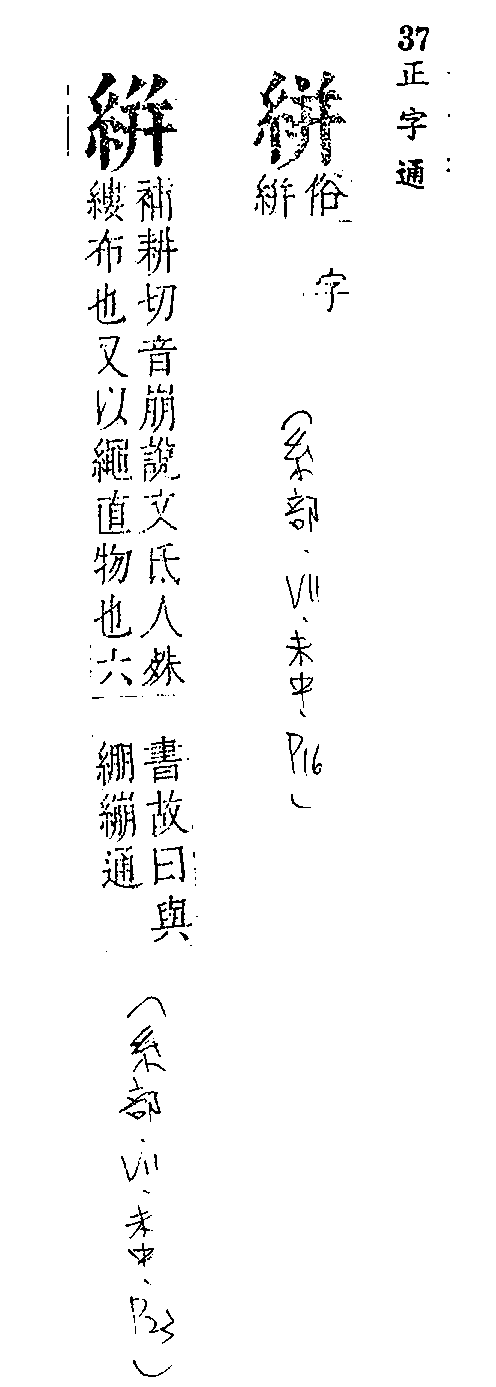 37 正字通
絣
俗字
絣
(糸部.VII.未中.P16)
絣
補耕切音崩說文氐人殊
縷布也又以繩直物也六
書故曰與
綳繃通
(糸部.VII.未中.P23)